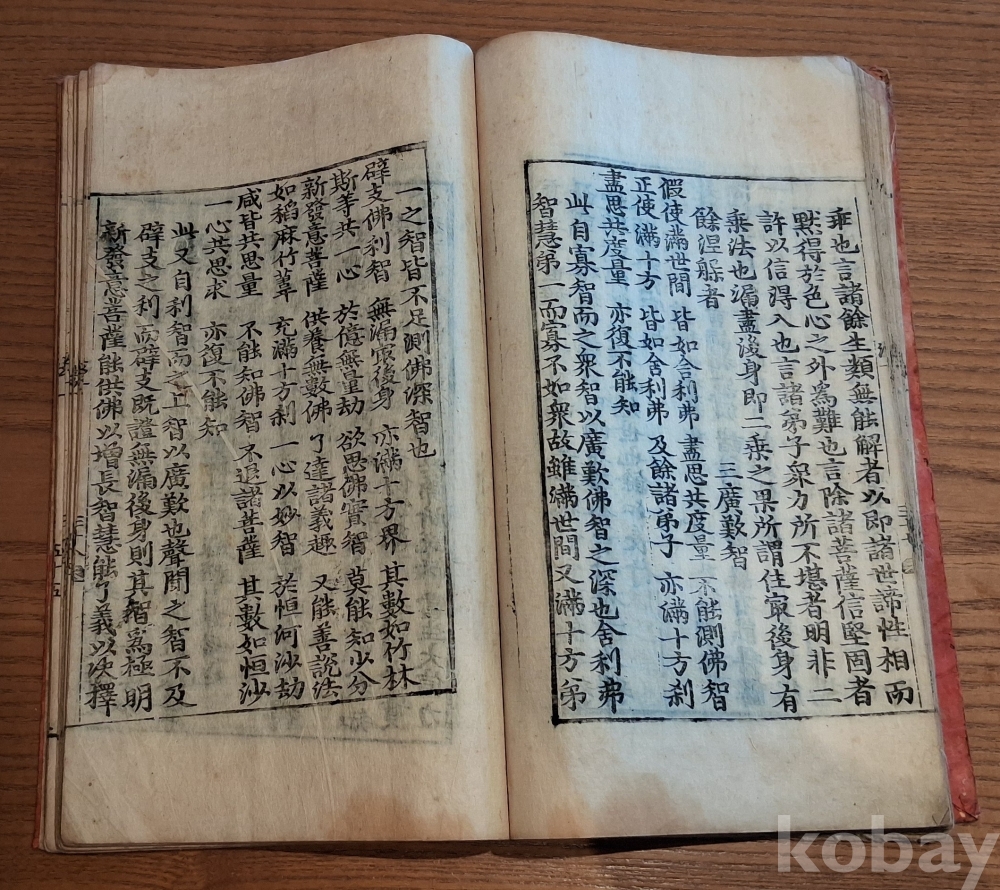 乗也言諸餘生類無能解者以即諸世諦性相而
黙得於色心之外爲難也言除諸菩薩信堅固者
許以信得入也言諸弟子衆力所不堪者明非二
乗法也漏盡後身即二乗之果所謂住㝡後身有
餘涅槃者 三廣歎智
假使滿世間 皆如舍利弗 盡思共度量 不能測佛智
正使滿十方 皆如舍利弗 及餘諸弟子 亦滿十方刹
盡思共度量 亦復不能知
此自寡智而之衆智以廣歎佛智之深也舍利弗
智慧第一而寡不如衆故雖滿世間又滿十方弟
一之智皆不足測佛深智也
辟支佛利智 無漏㝡後身 亦滿十方界 其數如竹林
斯等共一心 於億無量劫 欲思佛實智 莫能知少分
新發意菩薩 供養無數佛 了達諸義趣 又能善說法
如稻麻竹葦 充滿十方刹 一心以妙智 於恒河沙劫
咸皆共思量 不能知佛智 不退諸菩薩 其數如恒沙
一心共思求 亦復不能知
此又自利智而之上智以廣歎也聲聞之智不及
辟支之利而辟支既證無漏後身則其智爲極明
新發意菩薩能供佛以增長智慧能了義以决擇
kobay